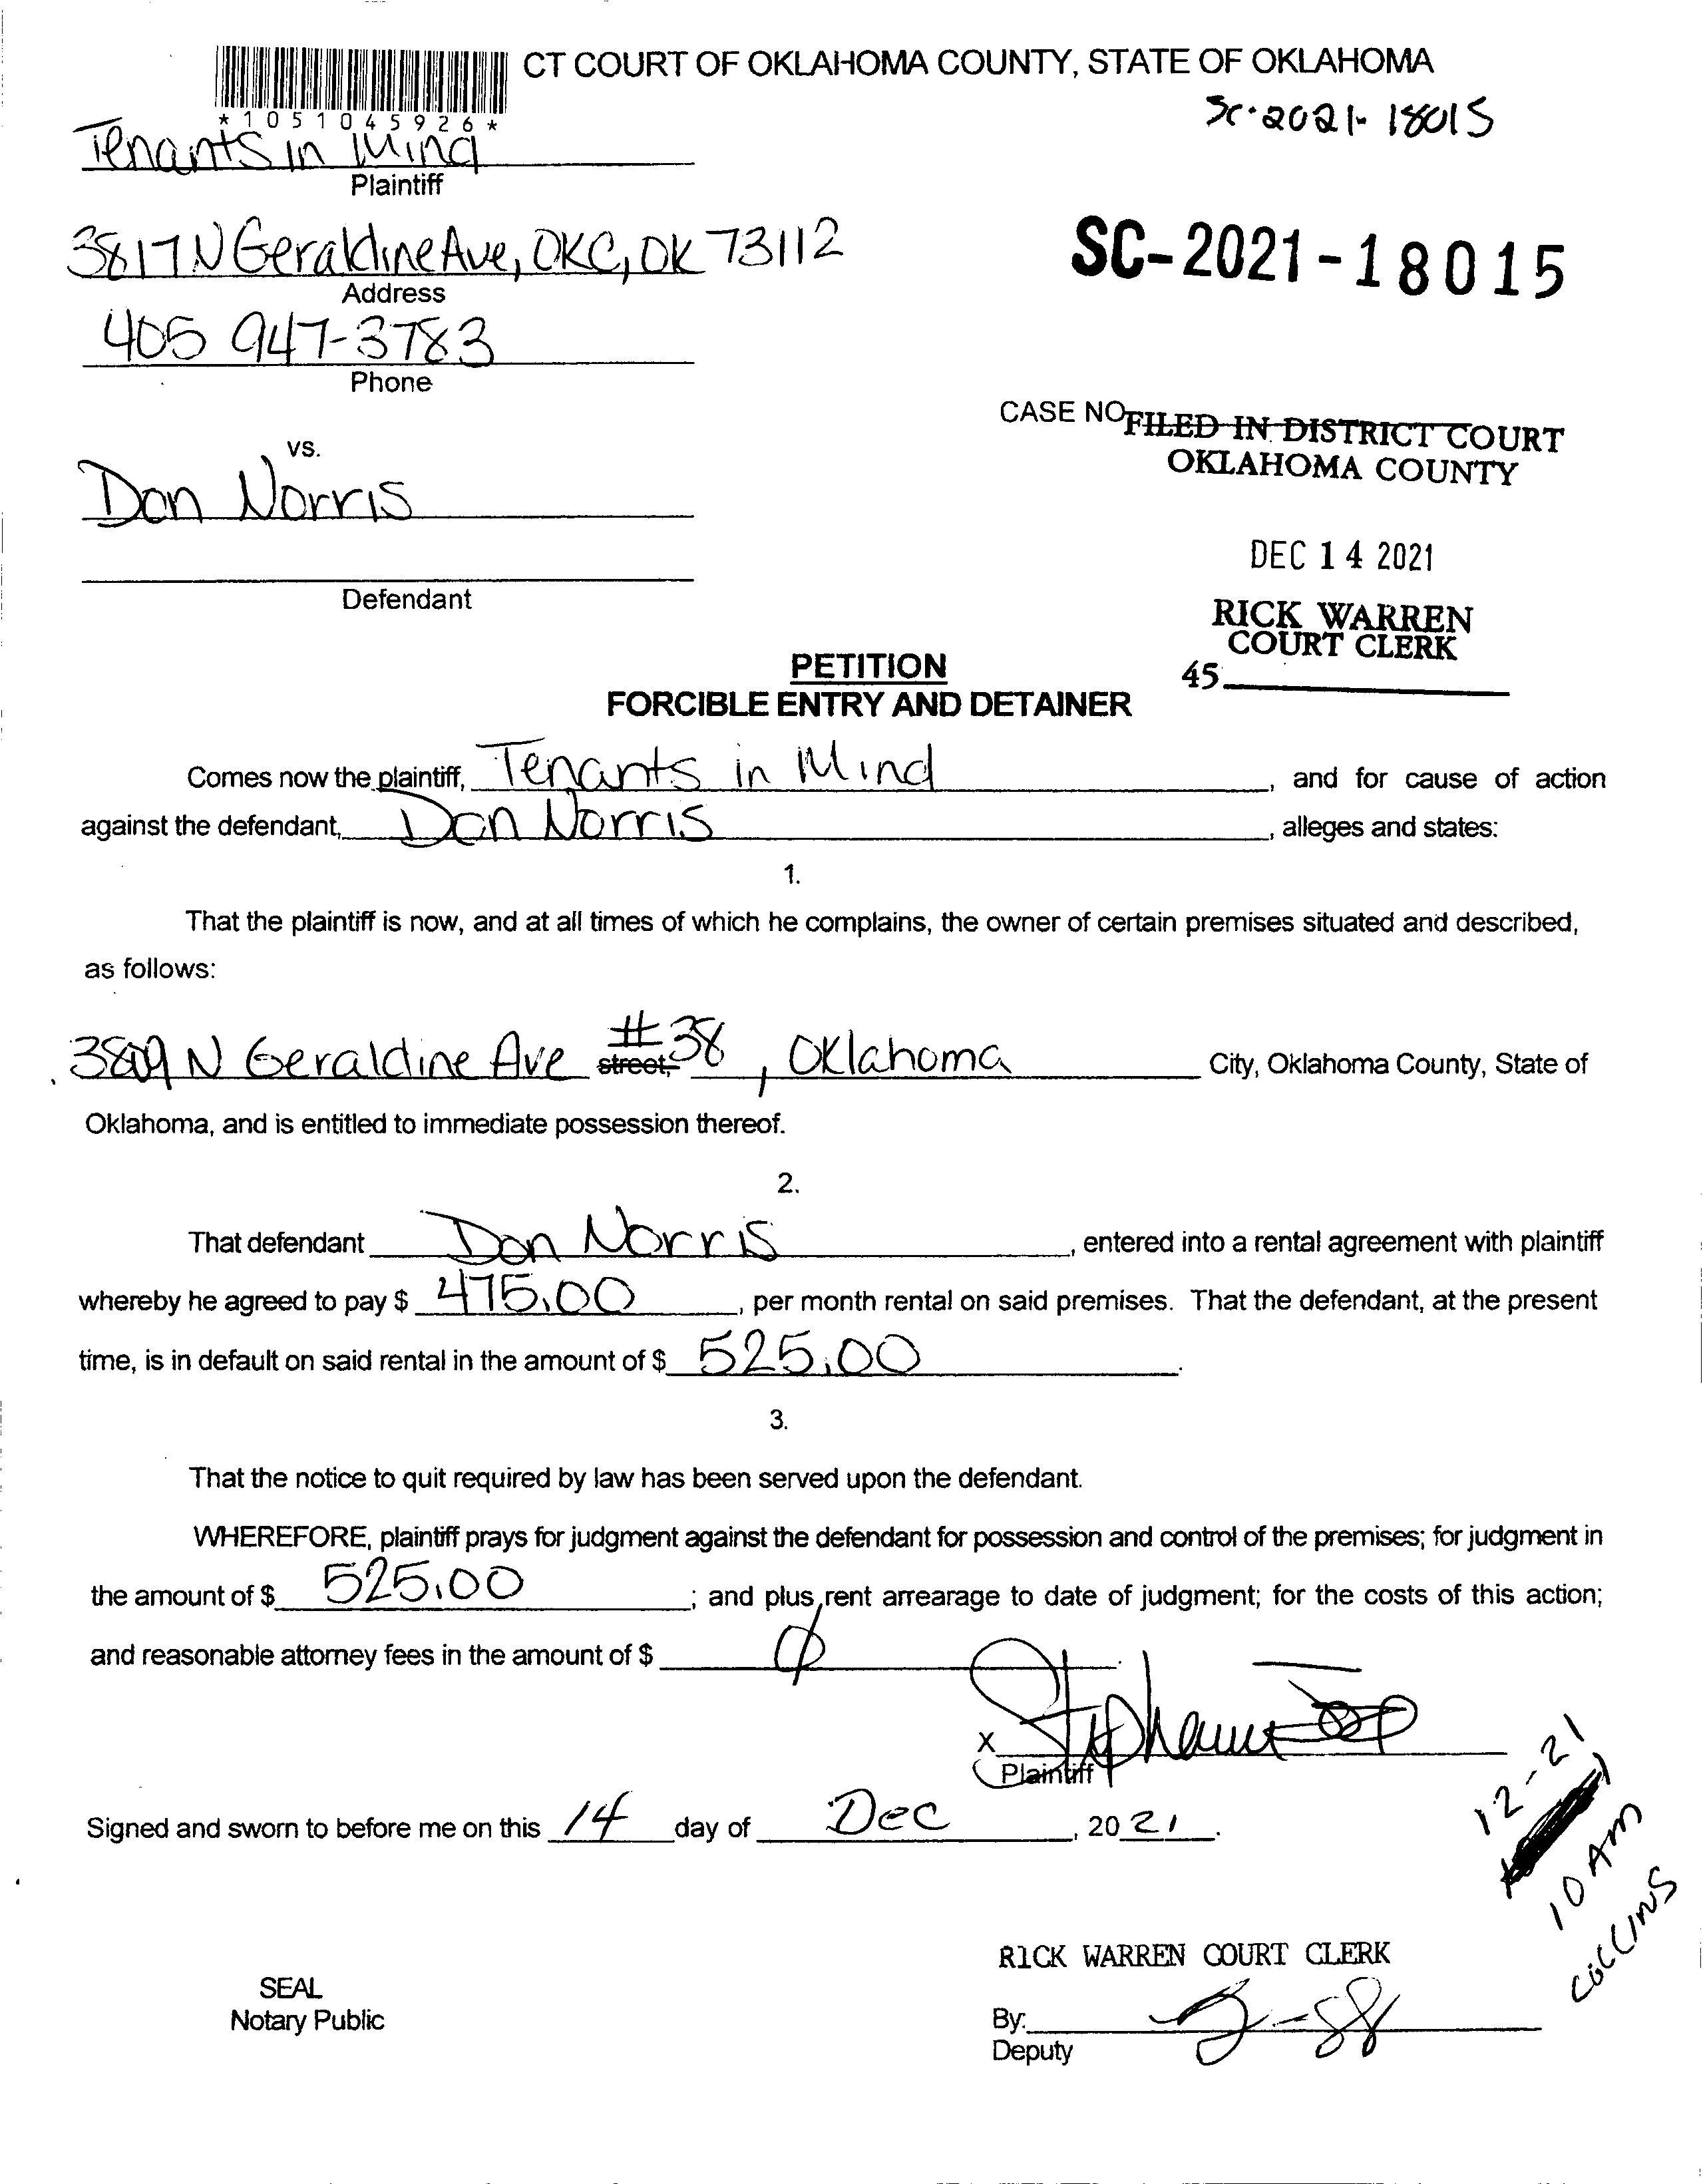 CT COURT OF OKLAHOMA COUNTY, STATE OF OKLAHOMA
*1051045926*
SC-2021-18015
Tenants in Mind
Plaintiff
3817 N Geraldine Ave, OKC, OK 73112
Address
SC-2021-18015
405 947-3783
Phone
CASE NO
FILED IN DISTRICT COURT
OKLAHOMA COUNTY
vs.
Don Norris
DEC 14 2021
Defendant
RICK WARREN
COURT CLERK
45
PETITION
FORCIBLE ENTRY AND DETAINER
Comes now the plaintiff, Tenants in Mind, and for cause of action
against the defendant, Don Norris, alleges and states:
1.
That the plaintiff is now, and at all times of which he complains, the owner of certain premises situated and described,
as follows:
N Geraldine Ave street, #38, Oklahoma City, Oklahoma County, State of
Oklahoma, and is entitled to immediate possession thereof.
2.
That defendant Don Norris, entered into a rental agreement with plaintiff
whereby he agreed to pay $ 475.00, per month rental on said premises. That the defendant, at the present
time, is in default on said rental in the amount of $ 525.00.
3.
That the notice to quit required by law has been served upon the defendant.
WHEREFORE, plaintiff prays for judgment against the defendant for possession and control of the premises; for judgment in
the amount of $ 525.00; and plus rent arrearage to date of judgment; for the costs of this action;
and reasonable attorney fees in the amount of $ 0
X
Plaintiff
Signed and sworn to before me on this 14 day of Dec, 2021.
12-21
10 AM
COLLINS
RICK WARREN COURT CLERK
SEAL
Notary Public
By:
Deputy